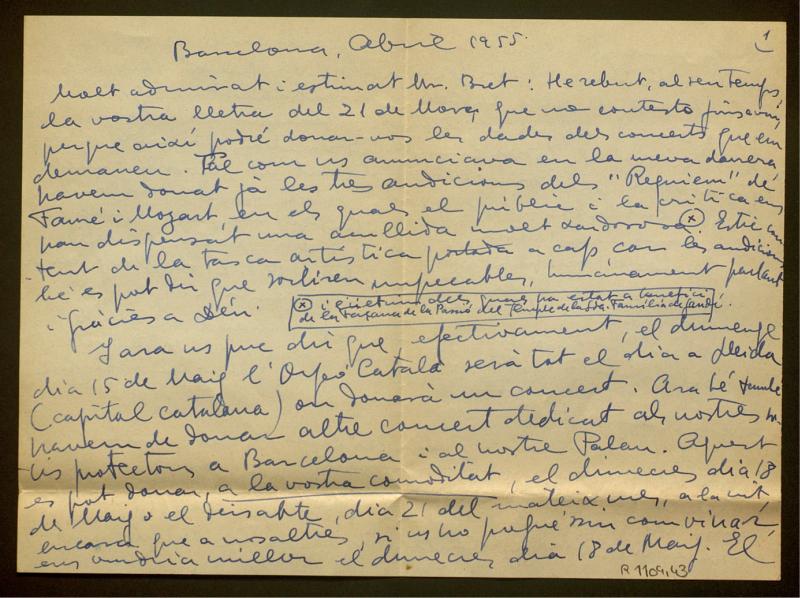 1
Barcelona, Abril 1955.
Molt admirat i estimat Mr. Bret: He rebut, al seu temps,
la vostra lletra del 21 de Març que no contesto fins avui,
perque així podré donar-vos les dades dels concerts que em
demaneu. Tal com us anunciava en la meva darrera
havem donat jà les tres audicions dels "Requiem" de
Fauré i Mozart en els quals el públic i la crítica ens
han dispensat una acullida molt xardorosa ⊗ Estic con
tent de la tasca artística portada a cap con les audicions
bé es pot dir que sortiren impecables, humanament parlant
i Gràcies a Déu.
⊗ i l'última dels quals ha estat a benefici
de la Façana de la Passió del Temple de la Sda. Família de Gaudí.
Yara us puc dir que, efectivament, el diumenge
dia 15 de Maig l'Orfeó Català serà tot el dia a Lleida
(capital catalana) on donarà un concert. Ara bé també
havem de donar altre concert dedicat als nostres so
cis protectors a Barcelona i al nostre Palau. Aquest
es pot donar, a la vostra comoditat, el dimecres dia 18
de Maig o el disabte, dia 21 del mateix mes, a la nit,
encara que a nosaltres, si us ho pogués sin convinar,
ens vindria millor el dimecres dia 18 de Maig. El
R 1109,43